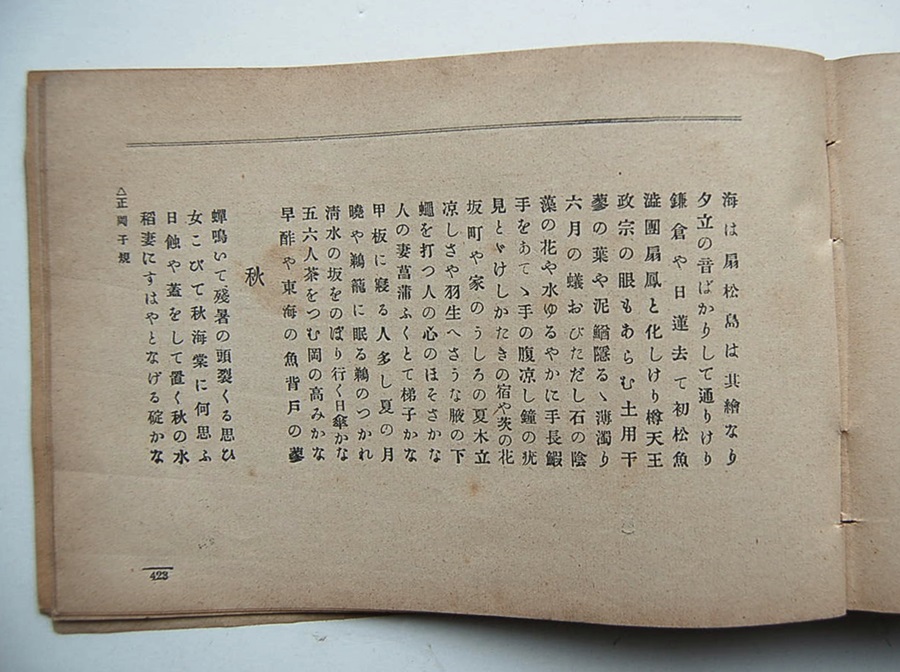 海は扇松島は其繪なり
夕立の音ばかりして通りけり
鎌倉や日蓮去て初松魚
澁團扇鳳と化しけり樽天王
政宗の眼もあらむ土用干
蓼の葉や泥鰌隱るゝ薄濁り
六月の蟻おびただし石の陰
藻の花や水ゆるやかに手長鰕
手をあてゝ手の腹凉し鐘の疣
見とゞけしかたきの宿や茨の花
坂町や家のうしろの夏木立
凉しさや羽生へさうな腋の下
蠅を打つ人の心のほそさかな
人の妻菖蒲ふくとて梯子かな
甲板に寢る人多し夏の月
曉や鵜籠に眠る鵜のつかれ
淸水の坂をのぼり行く日傘かな
五六人茶をつむ岡の高みかな
早酢や東海の魚背戸の蓼
秋
蟬鳴いて殘暑の頭裂くる思ひ
女こびて秋海棠に何思ふ
日蝕や蓋をして置く秋の水
稻妻にすはやとなげる碇かな
△正岡子規
423